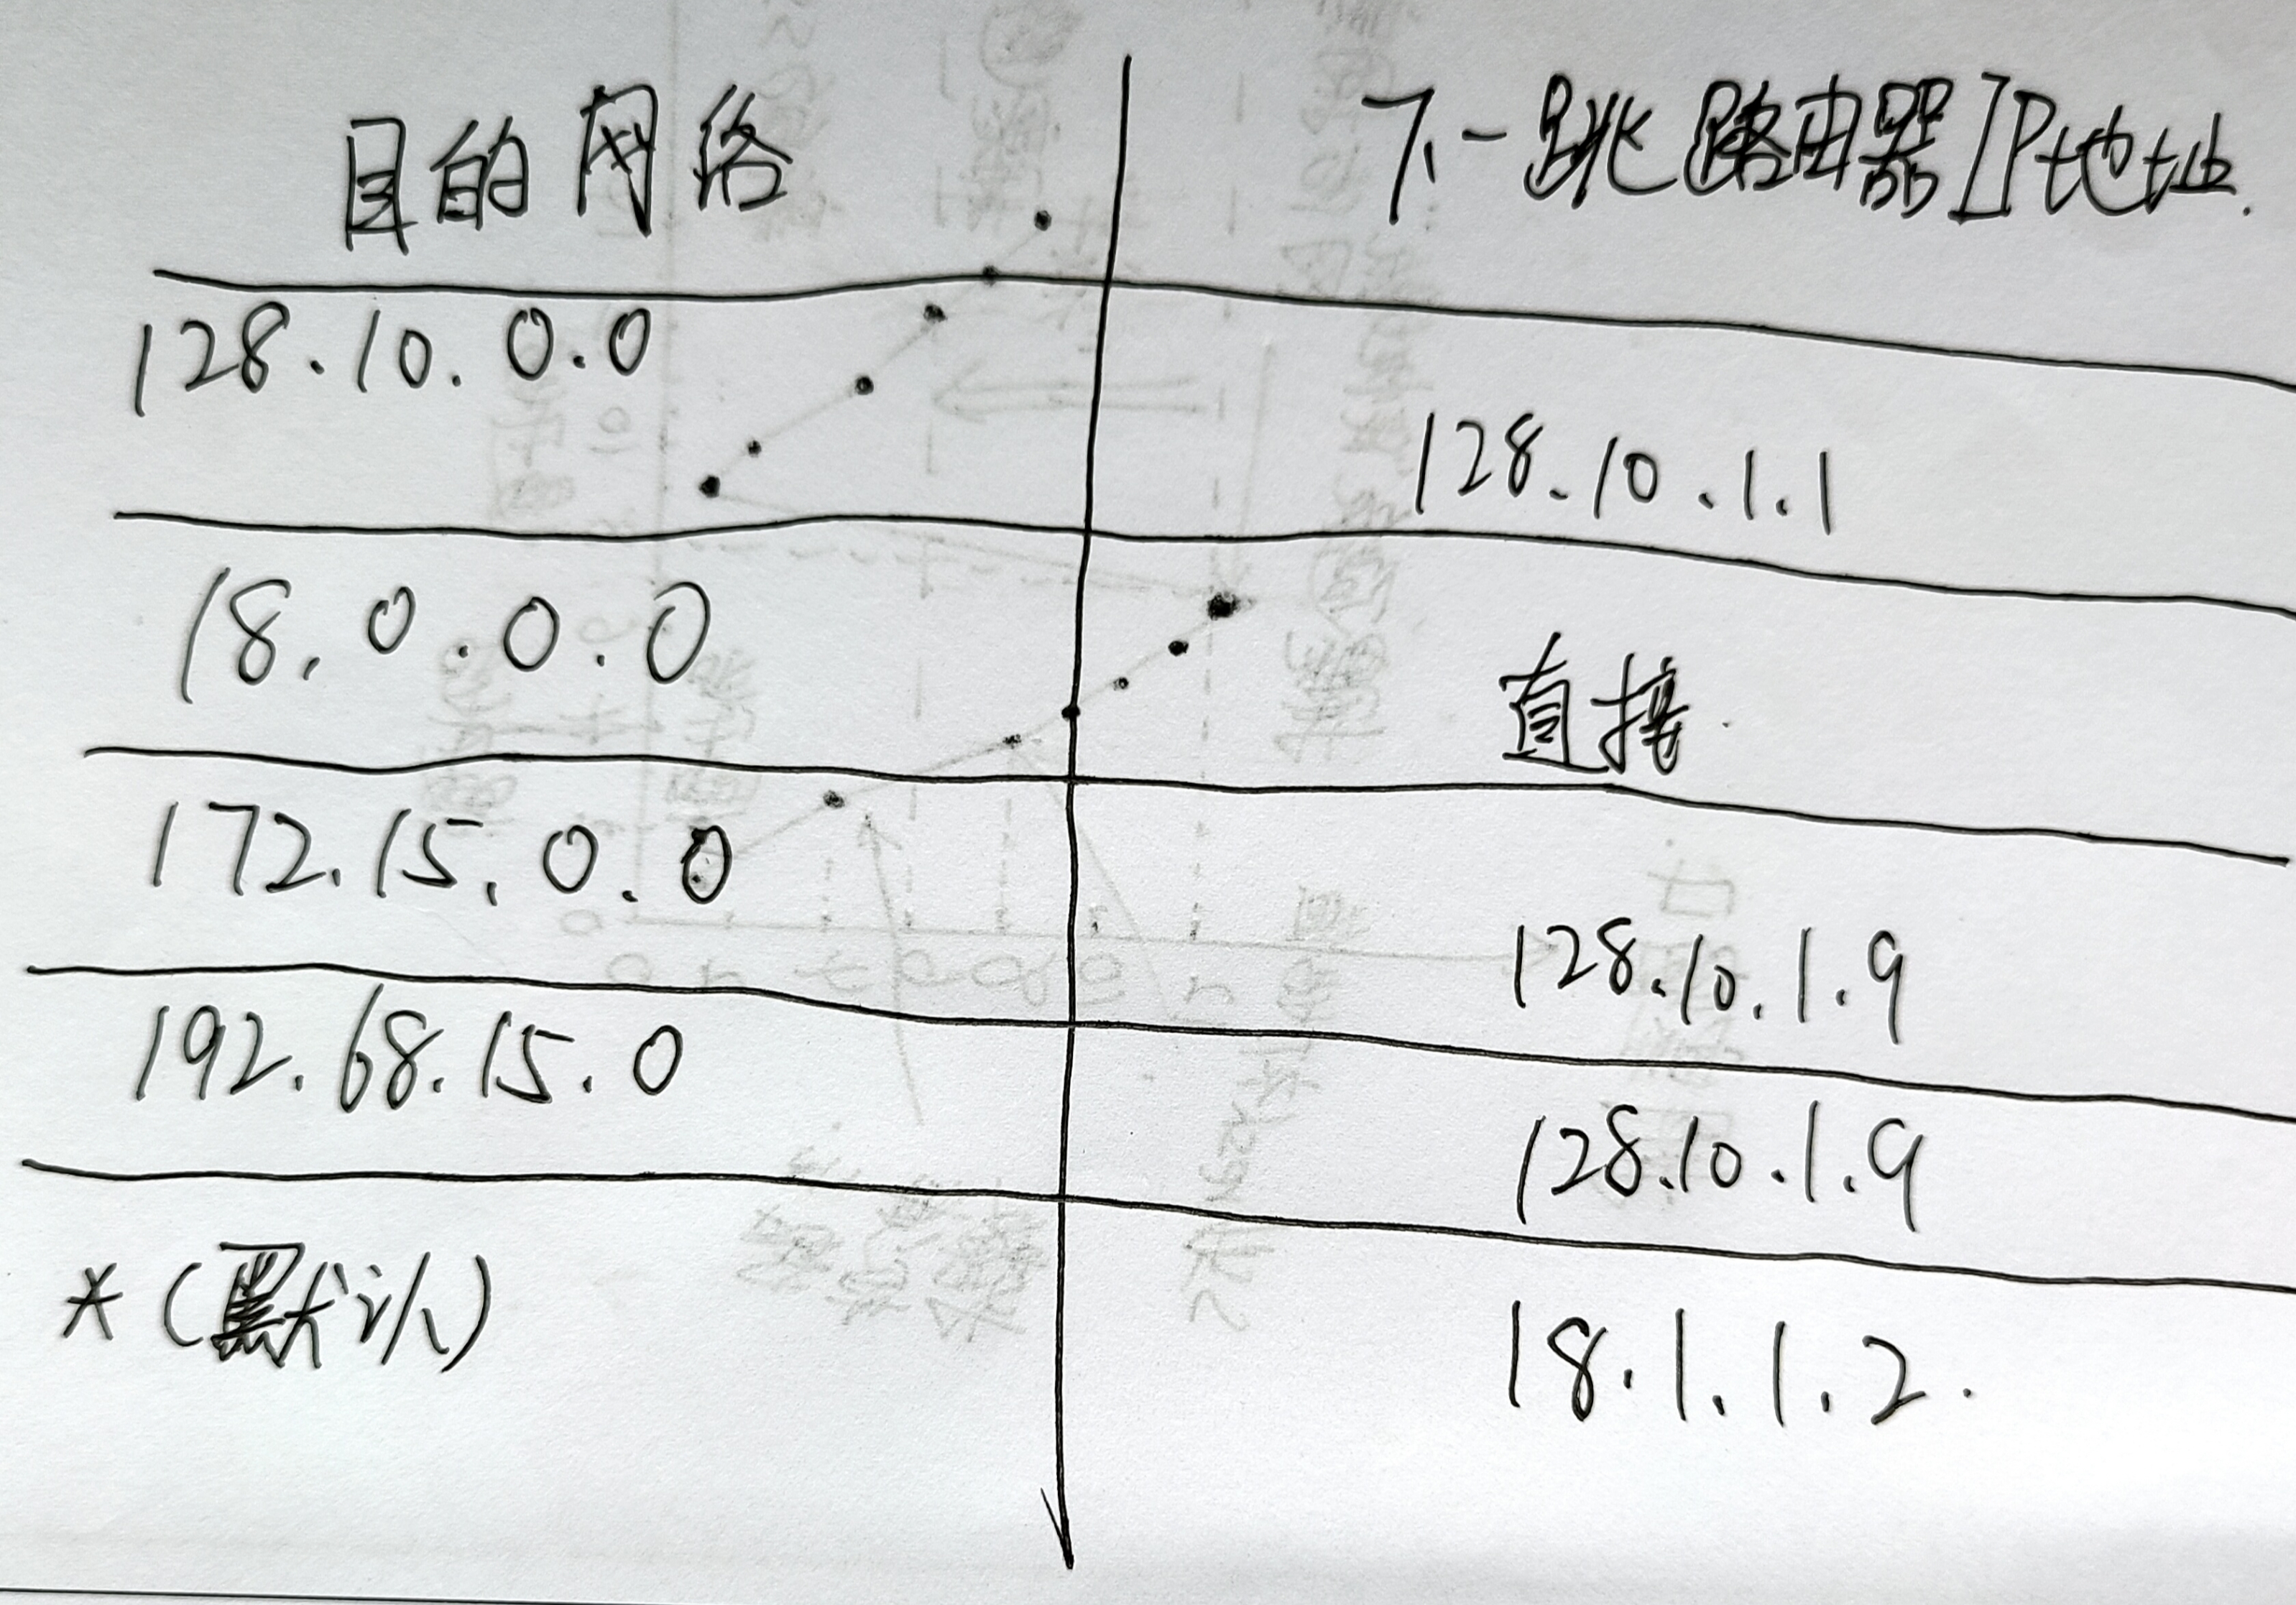 目的网络 下一跳路由器IP地址.
128.10.0.0 128.10.1.1
18.0.0.0 直接.
172.15.0.0 128.10.1.9
192.68.15.0 128.10.1.9
*(默认) 18.1.1.2.